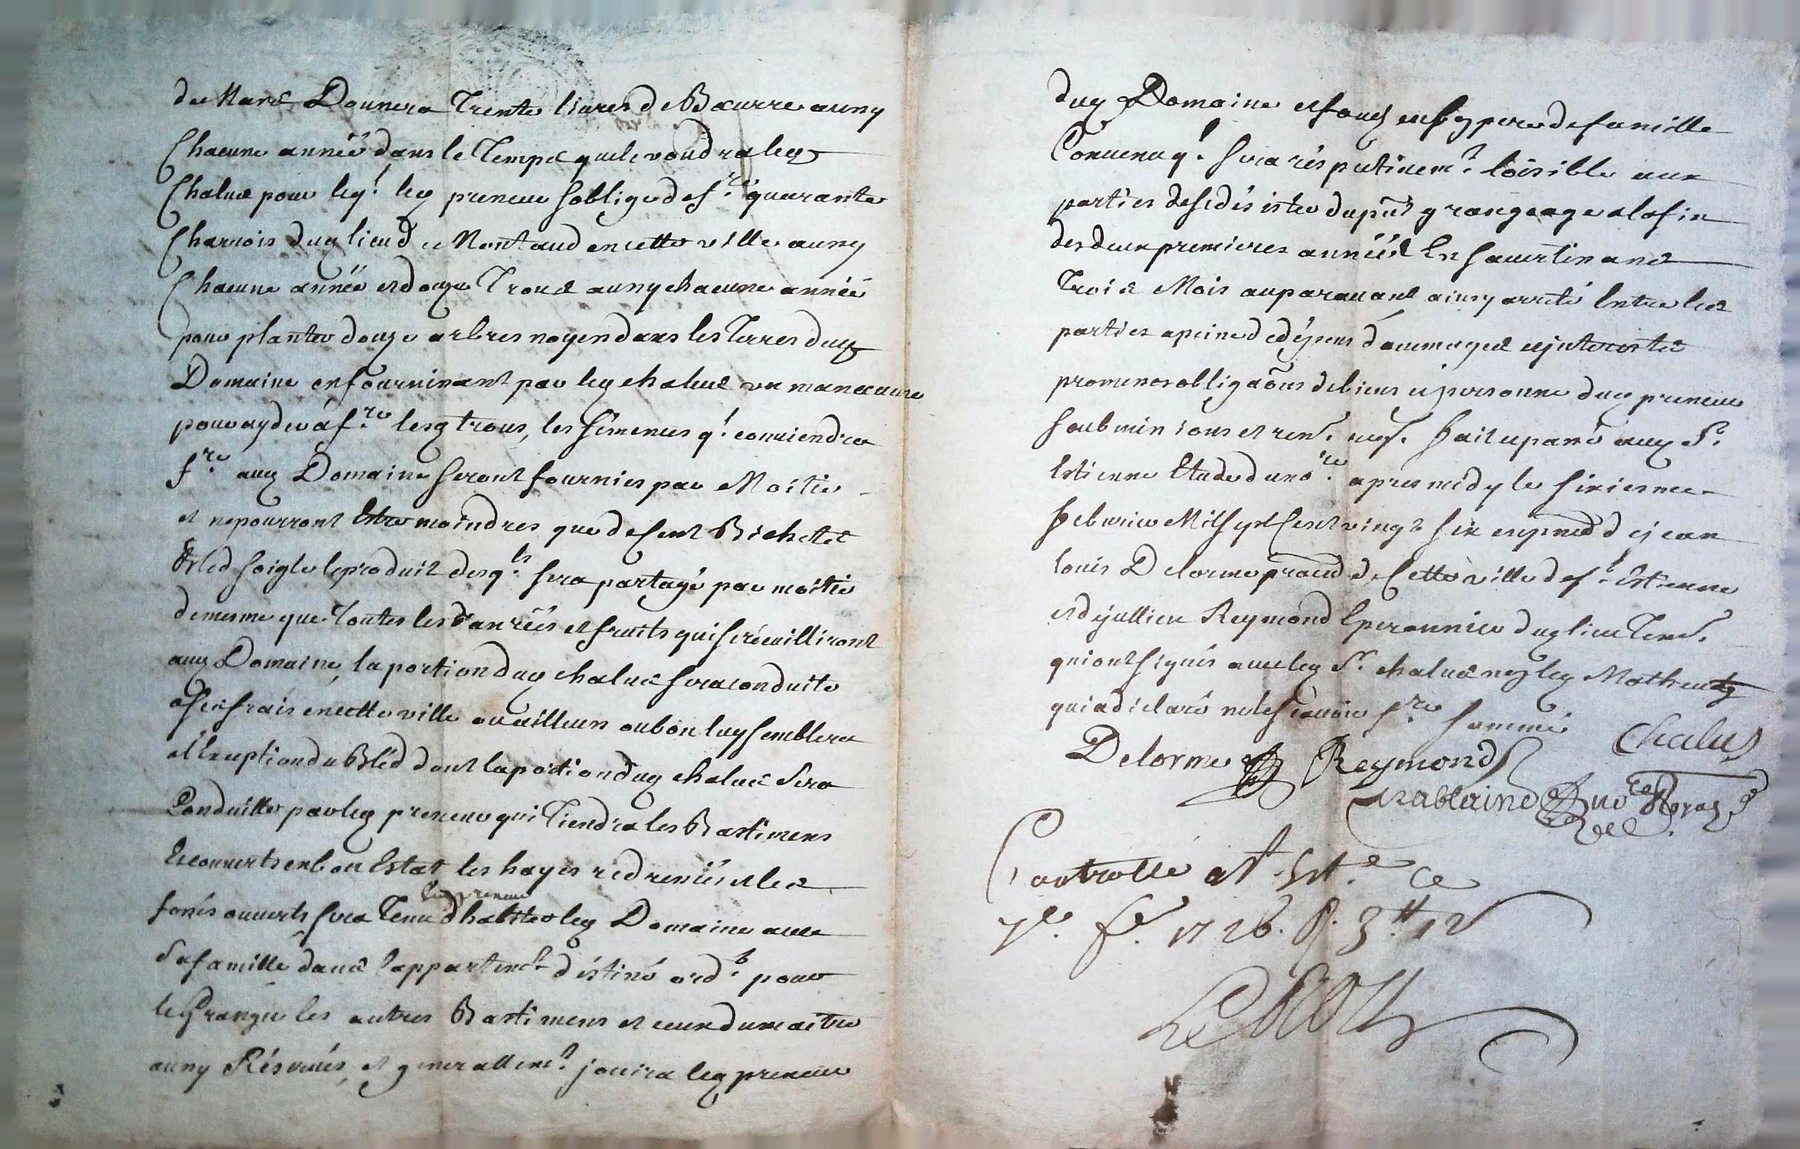 de Mars Donnera Trente livres de Beurre aussy
Chacune année dans le Temps quele voudra ledt
Chalus pour leqt led preneur soblige de fre quarante
Charrois dud lieu de Montaud en cette ville aussy
Chacune année et douze Trous aussy chacune année
pour planter douze arbres noyers dans les Terres dud
Domaine en fournissant par led chalus un manoeuvre
pour ayder a fre lesq trous, les semences qt conviendra
fre aud Domaine seront fournies par Moitie
et ne pourront Estre moindres que de Bichets
Bled soigle le produit desqls sera partagé par moitié
de mesme que Toutes les danrées et fruits qui se reveuilliront
aud Domaine, la portion dud chalus sera conduite
a ses frais en cette ville ou ailleurs ou bon luy semblera
a l'exception du Bled dont la portion dud chalus sera
Conduitte par led preneur qui Tiendra les Bastimens
Et couverts en bon Estat les hayes et les
led preneur
fossés ouverts sera Tenu d'habiter led Domaine avec
sa famille dans l'appartemt destiné ordt pour
le Granger les autres Bastimens et ceux du maitre
aussy Résérvés, et generallemt jouira led preneur
dud Domaine et fonds en bon pere de famille
Convenu qt sera réspectivemt loisible aux
parties de se désister du pnt grangeage a la fin
des deux premieres années En s'avertissant
Trois Mois auparavant ainsy arreté Entre les
parties a peine de dépens dommages et interests
promesses obligaons de biens et personne dud preneur
soubmissions et rens Fait et passé aud St
Estienne Etude du nore apres midy le sixiesme
febvrier Mil sept cent vingt six en pnce de jean
louis Delorme pratd de Cette ville de St Estienne
et de jullien Reymond Eperonnier dud lieu Tems
qui ont signés avec led Sr chalus non led Matheut
qui a declaré ne le scavoir fre sommé
Chalus
Delorme Reymond
Controllé a St Ete ce
7e fr 1726. R. 3tt 12